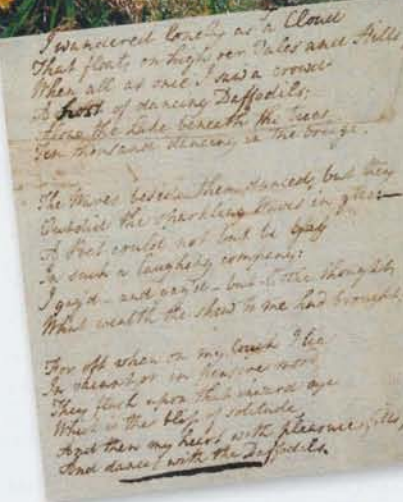 I wandered lonely as a Cloud
That floats on high o'er Vales and Hills,
When all at once I saw a crowd
A host of dancing Daffodils;
Along the Lake, beneath the trees,
Ten thousand dancing in the breeze.
The Waves beside them danced, but they
Outdid the sparkling Waves in glee:—
A Poet could not but be gay
In such a laughing company:
I gaz'd – and gaz'd – but little thought
What wealth the shew to me had brought.
For oft when on my couch I lie
In vacant or in pensive mood
They flash upon that inward eye
Which is the bliss of solitude
And then my heart with pleasure fills,
And dances with the Daffodils.